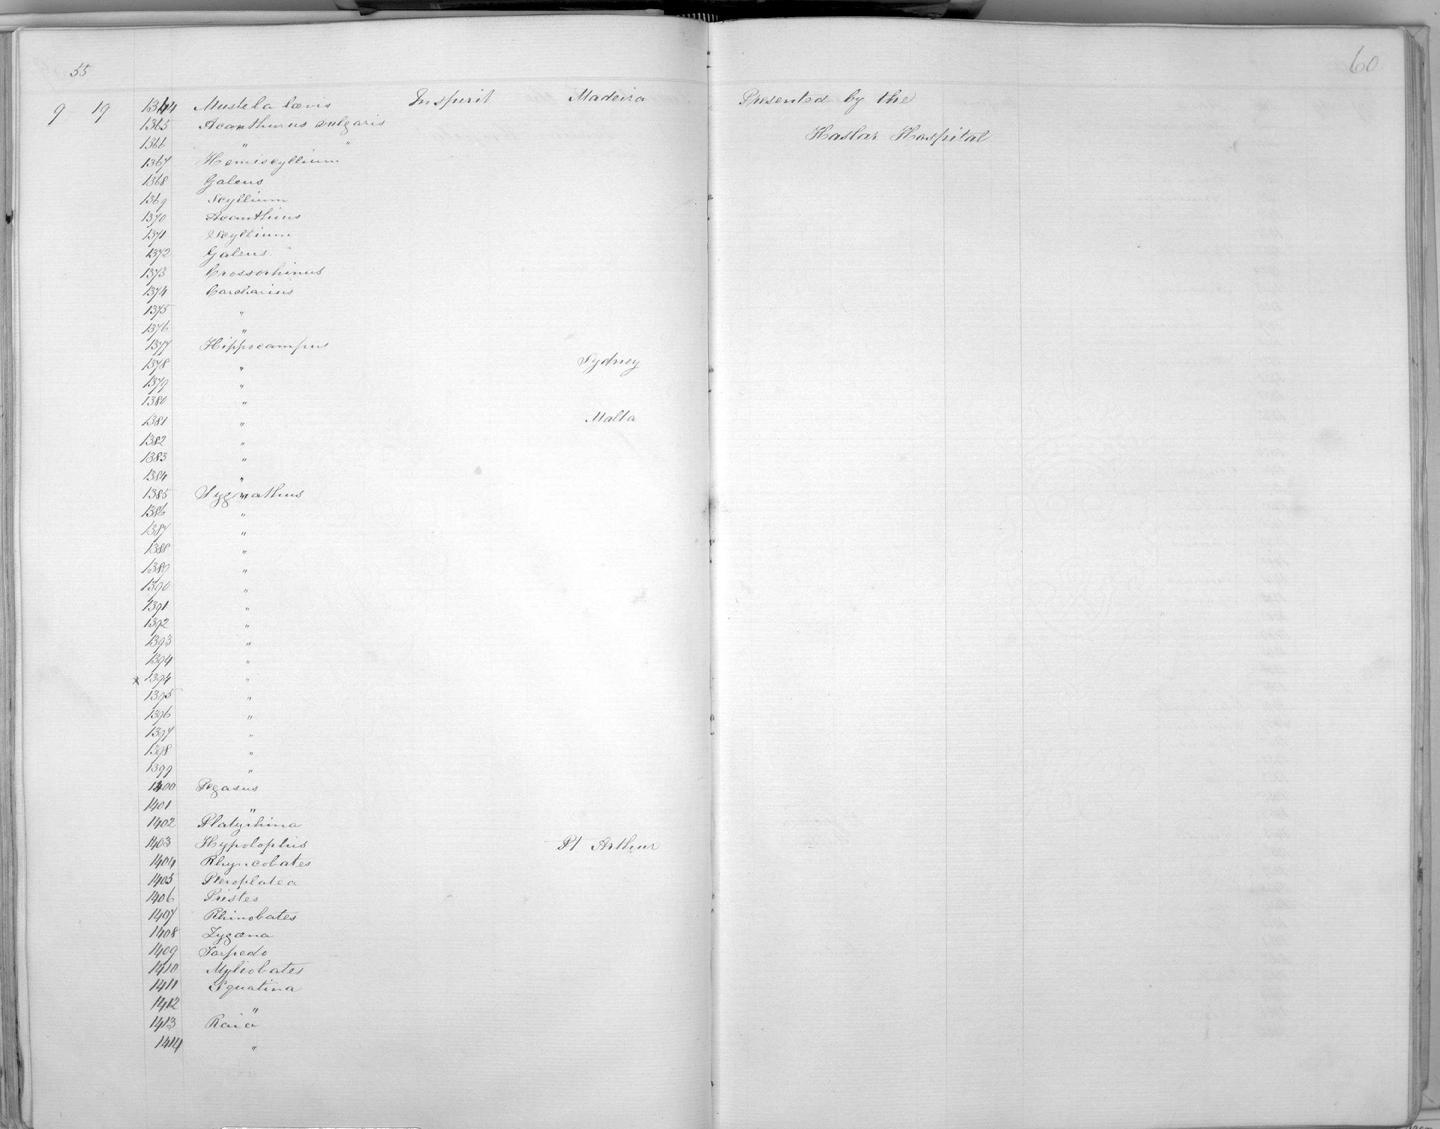 55
60
9 19 1364 Mustela lævis In spirit Madeira Presented by the
1365 Acanthurus vulgaris
Haslar Hospital
1366 " "
1367 Hemiscyllium
1368 Galeus
1369 Scyllium
1370 Acanthius
1371 Scyllium
1372 Galeus
1373 Crossorhinus
1374 Carcharius
1375 "
1376 "
1377 Hippocampus
1378 " Sydney
1379 "
1380 "
1381 " Malta
1382 "
1383 "
1384 "
1385 Sygnathus
1386 "
1387 "
1388 "
1389 "
1390 "
1391 "
1392 "
1393 "
1394 "
x 1394 "
1395 "
1396 "
1397 "
1398 "
1399 "
1400 Pegasus
1401 "
1402 Platyrhina
1403 Hypolophus Pt Arthur
1404 Rhyncobates
1405 Pteroplatea
1406 Pristes
1407 Rhinobates
1408 Zygæna
1409 Torpedo
1410 Myliobates
1411 Squatina
1412 "
1413 Raia
1414 "